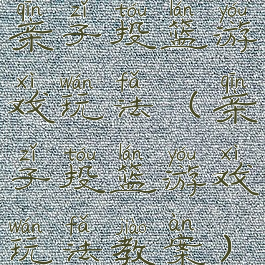 qīn zǐ tóu lán yóu
亲子投篮游
xì wán fǎ qīn
戏玩法（亲
zǐ tóu lán yóu xì
子投篮游戏
wán fǎ jiào àn
玩法教案）